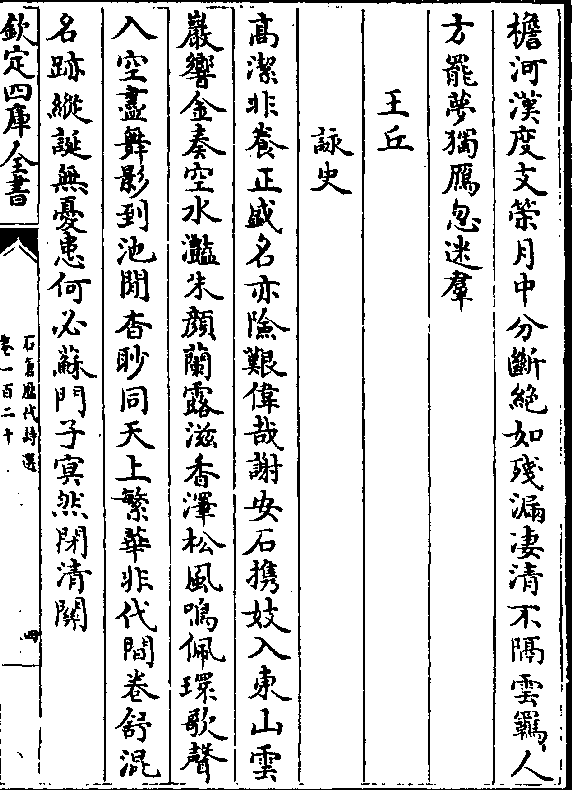 檐河漢度支策月中分斷絶如殘漏凄清不隔雲羈人
方罷夢獨鴈忽迷羣
王丘
詠史
髙潔非養正盛名亦險艱偉哉謝安石擕妓入東山雲
巖響金奏空水灩朱顔蘭露滋香澤松風鳴佩環歌聲
入空盡舞影到池閒杳眇同天上繁華非代間卷舒混
名跡縱誕無憂患何必蘇門子冥然閉清關
欽定四庫全書
石倉歴代詩選
卷一百二十
四